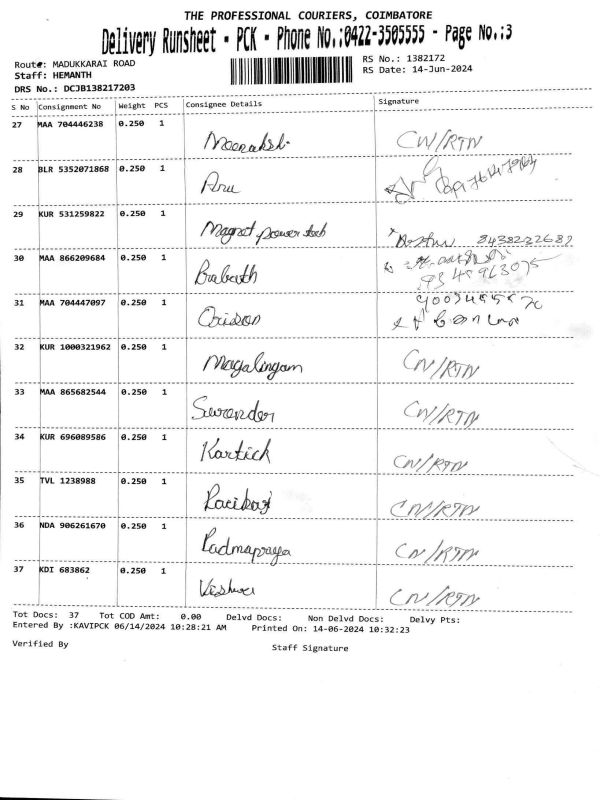 THE PROFESSIONAL COURIERS, COIMBATORE
Delivery Runsheet - PCK - Phone No.:0422-3505555 - Page No.:3
Route: MADUKKARAI ROAD
RS No.: 1382172
Staff: HEMANTH
RS Date: 14-Jun-2024
DRS No.: DCJB138217203
S No Consignment No Weight PCS Consignee Details Signature
27 MAA 704446238 0.250 1 Meenakshi CN/RTN
28 BLR 5352071868 0.250 1 Anu
29 KUR 531259822 0.250 1 Magnet power tech 8438222689
30 MAA 866209684 0.250 1 Prabath
31 MAA 704447097 0.250 1 Orison
32 KUR 1000321962 0.250 1 Magalingam CN/RTN
33 MAA 865682544 0.250 1 Surender CN/RTN
34 KUR 696089586 0.250 1 Kartick CN/RTN
35 TVL 1238988 0.250 1 CN/RTN
36 NDA 906261670 0.250 1 Padmapraya CN/RTN
37 KDI 683862 0.250 1 CN/RTN
Tot Docs: 37 Tot COD Amt: 0.00 Delvd Docs: Non Delvd Docs: Delvy Pts:
Entered By :KAVIPCK 06/14/2024 10:28:21 AM Printed On: 14-06-2024 10:32:23
Verified By Staff Signature